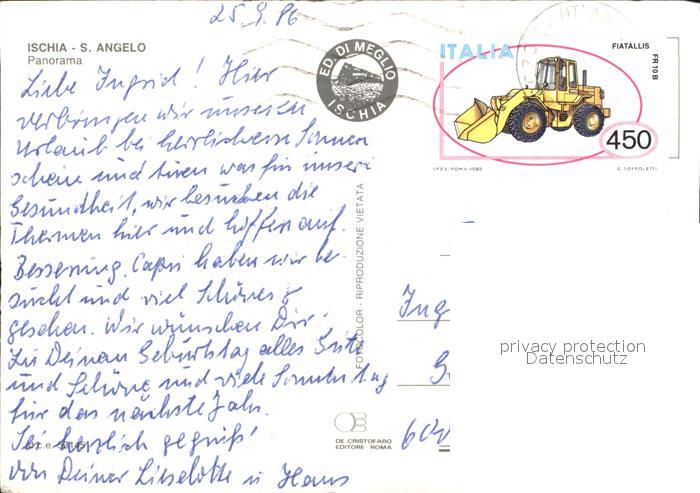 25.9.86
ISCHIA - S. ANGELO
Panorama
Liebe Ingrid! Hier
verbringen wir unseren
Urlaub bei herrlichem Sonnen
schein und tuen was für unsere
Gesundheit, wir besuchen die
Thermen hier und hoffen auf
Besserung. Capri haben wir be-
sucht und viel Schönes
gesehen. Wir wünschen Dir
zu Deinem Geburtstag alles Gute
und Schöne und viele Sonnentag
für das nächste Jahr.
Sei herzlich gegrüßt
von Deiner Lieselotte u Hans
ED. DI MEGLIO
ISCHIA
FOTOCOLOR - RIPRODUZIONE VIETATA
DE CRISTOFARO
EDITORE ROMA
ITALIA
FIATALLIS
FR 10 B
450
I.P.Z.S.-ROMA-1986
C. TOFFOLETTI
Ing
G
privacy protection
Datenschutz